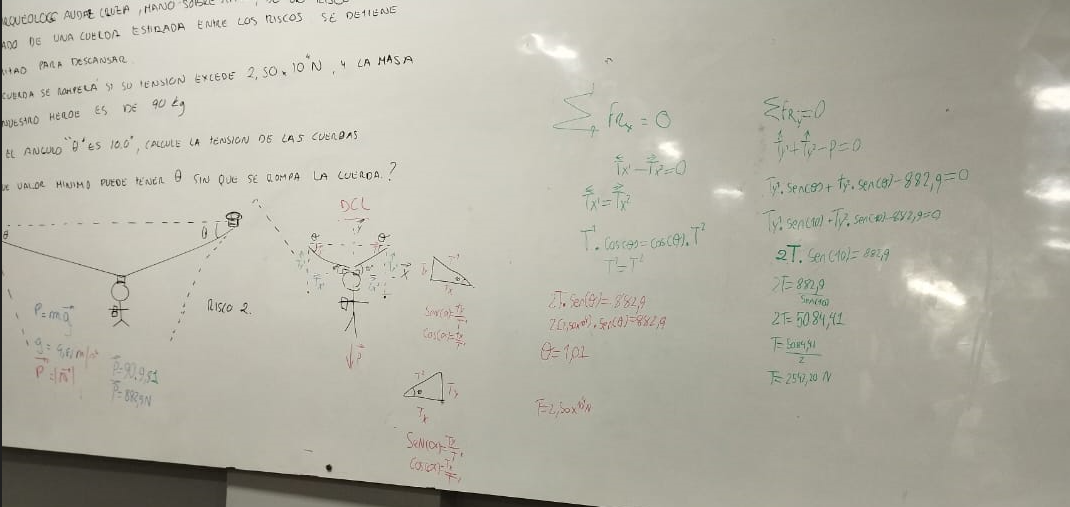 ARQUEOLOGO AUDAZ CRUZA, MANO SOBRE
DE UNA CUERDA ESTIRADA ENTRE LOS RISCOS SE DETIENE
PARA DESCANSAR.
CUERDA SE ROMPERÁ SI SU TENSION EXCEDE 2,50 x 10⁴ N, Y LA MASA
NUESTRO HEROE ES DE 90 kg
EL ANGULO "θ" ES 10.0°, CALCULE LA TENSION DE LAS CUERDAS
VALOR MINIMO PUEDE TENER θ SIN QUE SE ROMPA LA CUERDA.?
θ
θ
RISCO 2.
P=mg
g = 9,81 m/s²
P=90.9,81
P=882,9N
DCL
y
θ θ
x
P
Tx
Sen(α)=Ty/T
Cos(α)=Tx/T
Ty
Tx
SEN(α)=Ty/T
Cos(α)=Tx/T
∑ FRx = 0
Tx¹ - Tx²=0
Tx¹ = Tx²
T¹. Cos(θ)=cos(θ). T²
T¹=T²
2T. Sen(θ)= 882,9
2(2,50x10⁴). Sen(θ)=882,9
θ=1,01
T=2,50x10⁴N
∑FRy=0
Ty¹+Ty²-P=0
Ty¹. Sen(θ) + Ty². Sen(θ) - 882,9=0
Ty¹. Sen(10) + Ty². Sen(10) - 882,9=0
2T. Sen(10)= 882,9
2T= 882,9
Sen(10)
2T= 5084,41
T= 5084,41
2
T= 2542,20 N